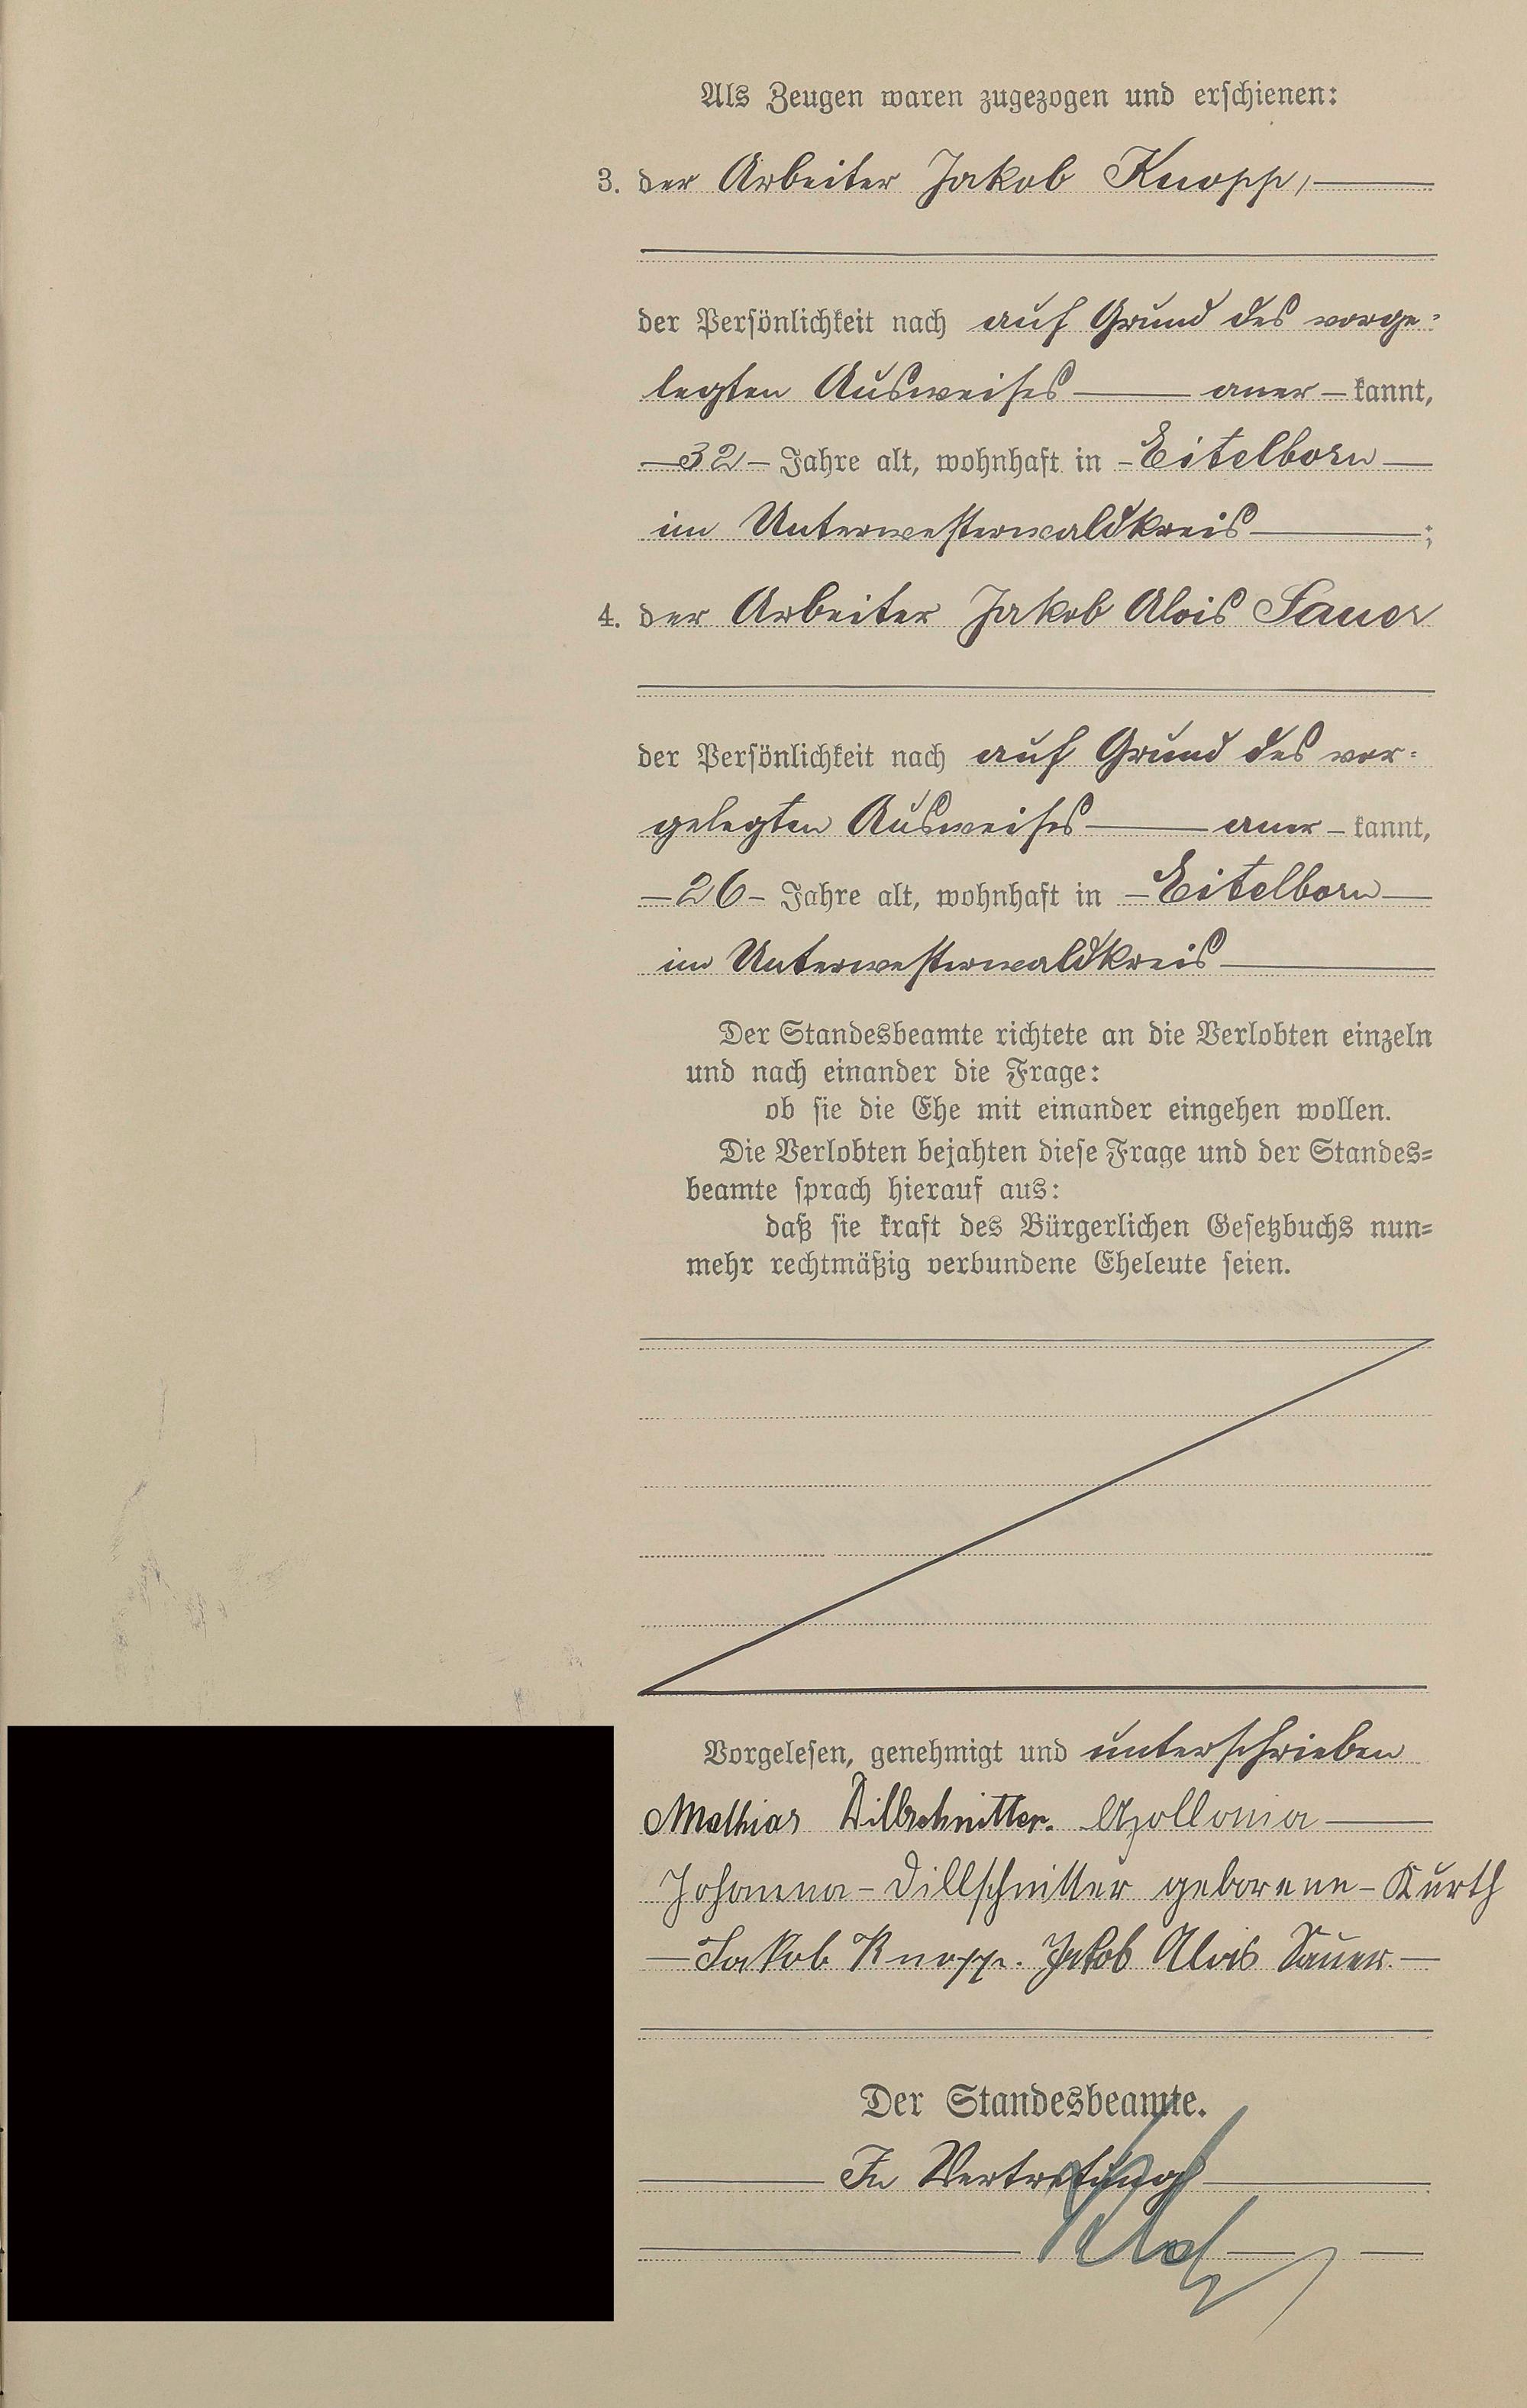 Als Zeugen waren zugezogen und erschienen:
3. der Arbeiter Jakob Knopp,
der Persönlichkeit nach auf Grund des vorge=
legten Ausweises aner – kannt,
– 32 – Jahre alt, wohnhaft in – Eitelborn –
im Unterwesterwaldkreis ;
4. der Arbeiter Jakob Alois Sauer
der Persönlichkeit nach auf Grund des vor=
gelegten Ausweises aner – kannt,
– 26 – Jahre alt, wohnhaft in – Eitelborn –
im Unterwesterwaldkreis
Der Standesbeamte richtete an die Verlobten einzeln
und nach einander die Frage:
ob sie die Ehe mit einander eingehen wollen.
Die Verlobten bejahten diese Frage und der Standes=
beamte sprach hierauf aus:
daß sie kraft des Bürgerlichen Gesetzbuchs nun=
mehr rechtmäßig verbundene Eheleute seien.
Vorgelesen, genehmigt und unterschrieben
Mathias Dillschnitter. Apollonia
Johanna – Dillschnitter geborene – Kurth
– Jakob Knopp. Jakob Alois Sauer. –
Der Standesbeamte.
In Vertretung